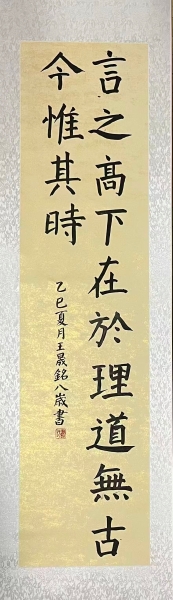 言之高下在於理道無古
今惟其時
乙巳夏月王晟銘八歲書